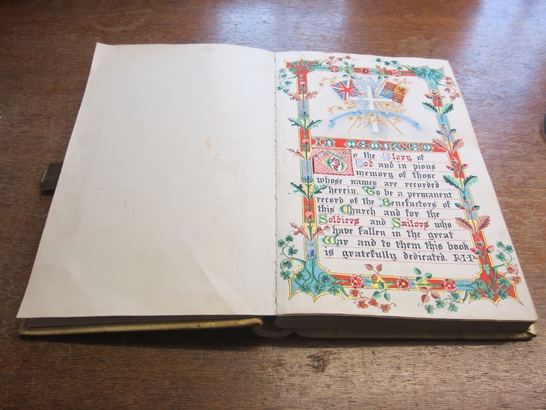 IN MEMORIAM
To the Glory of
God and in pious
memory of those
whose names are recorded
herein. To be a permanent
record of the Benefactors of
this Church and for the
Soldiers and Sailors who
have fallen in the great
War and to them this book
is gratefully dedicated. R.I.P.